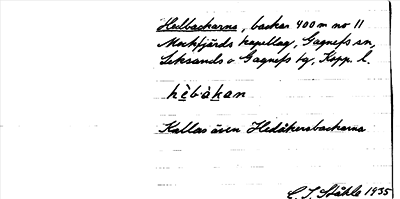 Hedbackarna, backar 400 m no ll
Mockfjärds kapellag, Gagnefs sn,
Leksands o Gagnefs tg, Kopp. l.
hèbàkan
Kallas även Hedåkersbackarna
C. I. Ståhle 1935